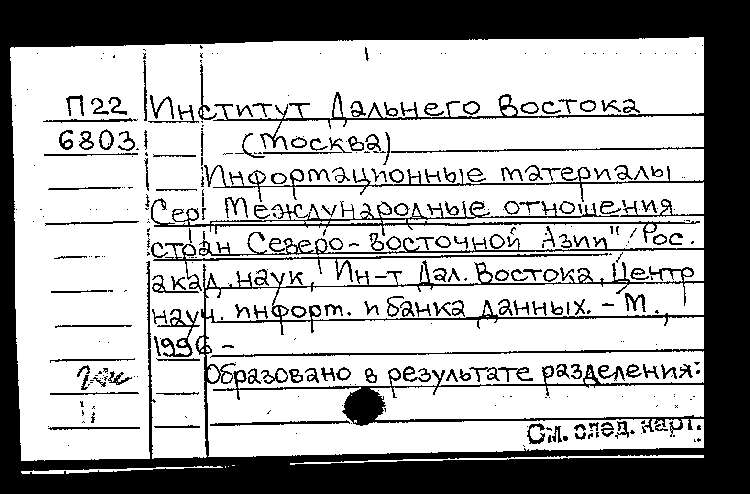 П22 Институт Дальнего Востока
6803 (Москва)
Информационные материалы
Сер. "Международные отношения
стран Северо-Восточной Азии" / Рос.
акад. наук, Ин-т Дал. Востока, Центр
науч. информ. и банка данных. - М.,
1996 -
Образовано в результате разделения:
См. след. карт.